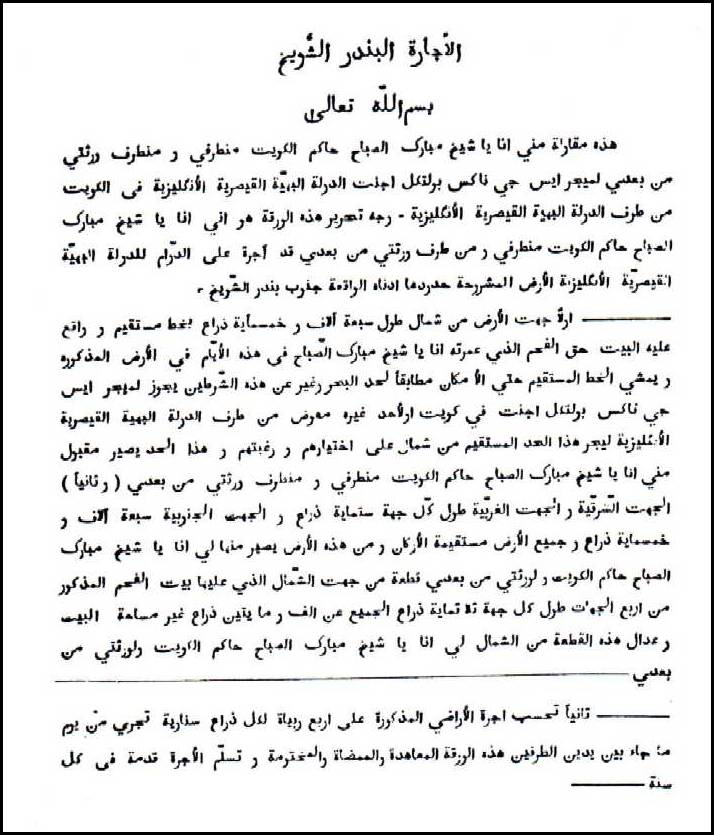 الأجارة البندر الشّويخ
بسم اللّه تعالى
هذه مقاراة مني انا يا شيخ مبارك الصباح حاكم الكويت منطرفي و منطرف ورثتي
من بعدي لميجر ايس جي ناكس برلتكل اجنت الدولة البهيّة القيصرية الأنگليزية فى الكويت
من طرف الدولة البهية القيصرية الأنگليزية - رجه تحرير هذه الورقة هو اني انا يا شيخ مبارك
الصباح حاكم الكويت منطرفي و من طرف ورثتي من بعدي قد أجرة على الدّرام للدولة البهيّة
القيصريّة الأنگليزية الأرض المشررحة حدردها ادناه الراقعة جذرب بندر الشّريخ -
ارلاً جهت الأرض من شمال طول سبعة آلاف و خمسماية ذراع بخط مستقيم و راقع
عليه البيت حق الفحم الذي عمرته انا يا شيخ مبارك الصّباح فى هذه الأيّام في الأرض المذكوره
و يمشي الخط المستقيم حتي الأ مكان مطابقاً لحد البحر رغير عن هذه الشّرطين يجوز لميجر ايس
جي ناكس برلتكل اجنت في كويت ارلاحد غيره معرض من طرف الدولة البهية القيصرية
الأنگليزية ليجر هذا الحد المستقيم من شمال على اختيارهم و رغبتهم و هذا الحد يصير مقبول
مني انا يا شيخ مبارك الصباح حاكم الكويت منطرفي و منطرف ورثتي من بعدي ( و ثانياً )
الجهت الشّرقيّة و الجهت الغربيّة طول كلّ جهة ستماية ذراع و الجهت الجنوبية سبعة آلاف و
خمسماية ذراع و جميع الأرض مستقيمة الأركان و من هذه الأرض يصير منها لي انا يا شيخ مبارك
الصباح حاكم الكويت و لورثتي من بعدي قطعة من جهت الشّمال الذي عليها بيت الفحم المذكور
من اربع الجهات طول كل جهة ثلا ثماية ذراع الجميع عن الف و ما يتين ذراع غير مساحة البيت
و عدال هذه القطعة من الشمال لي انا يا شيخ مبارك الصباح حاكم الكويت ولورثتي من
بعدي
ثانياً تحسب اجرة الأراضي المذكورة على اربع ربياة لكل ذراع سنارية تجري من يوم
ما جاء بين يدين الطرفين هذه الورقة المعاهدة والممضاة والمخترمة و تسلّم الأجرة قدمة فى كل
سنة